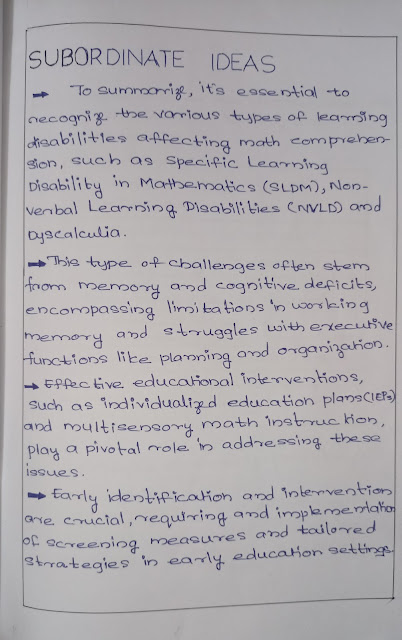 SUBORDINATE IDEAS
➡ To summarize, it's essential to
recognize the various types of learning
disabilities affecting math comprehen-
sion, such as Specific Learning
Disability in Mathematics (SLDM), Non-
verbal Learning Disabilities (NVLD) and
Dyscalculia.
➡ This type of challenges often stem
from memory and cognitive deficits,
encompassing limitations in working
memory and struggles with executive
functions like planning and organization.
➡ Effective educational interventions,
such as individualized education plans (IEPs)
and multisensory math instruction,
play a pivotal role in addressing these
issues.
➡ Early identification and intervention
are crucial, requiring and implementation
of screening measures and tailored
strategies in early education settings.